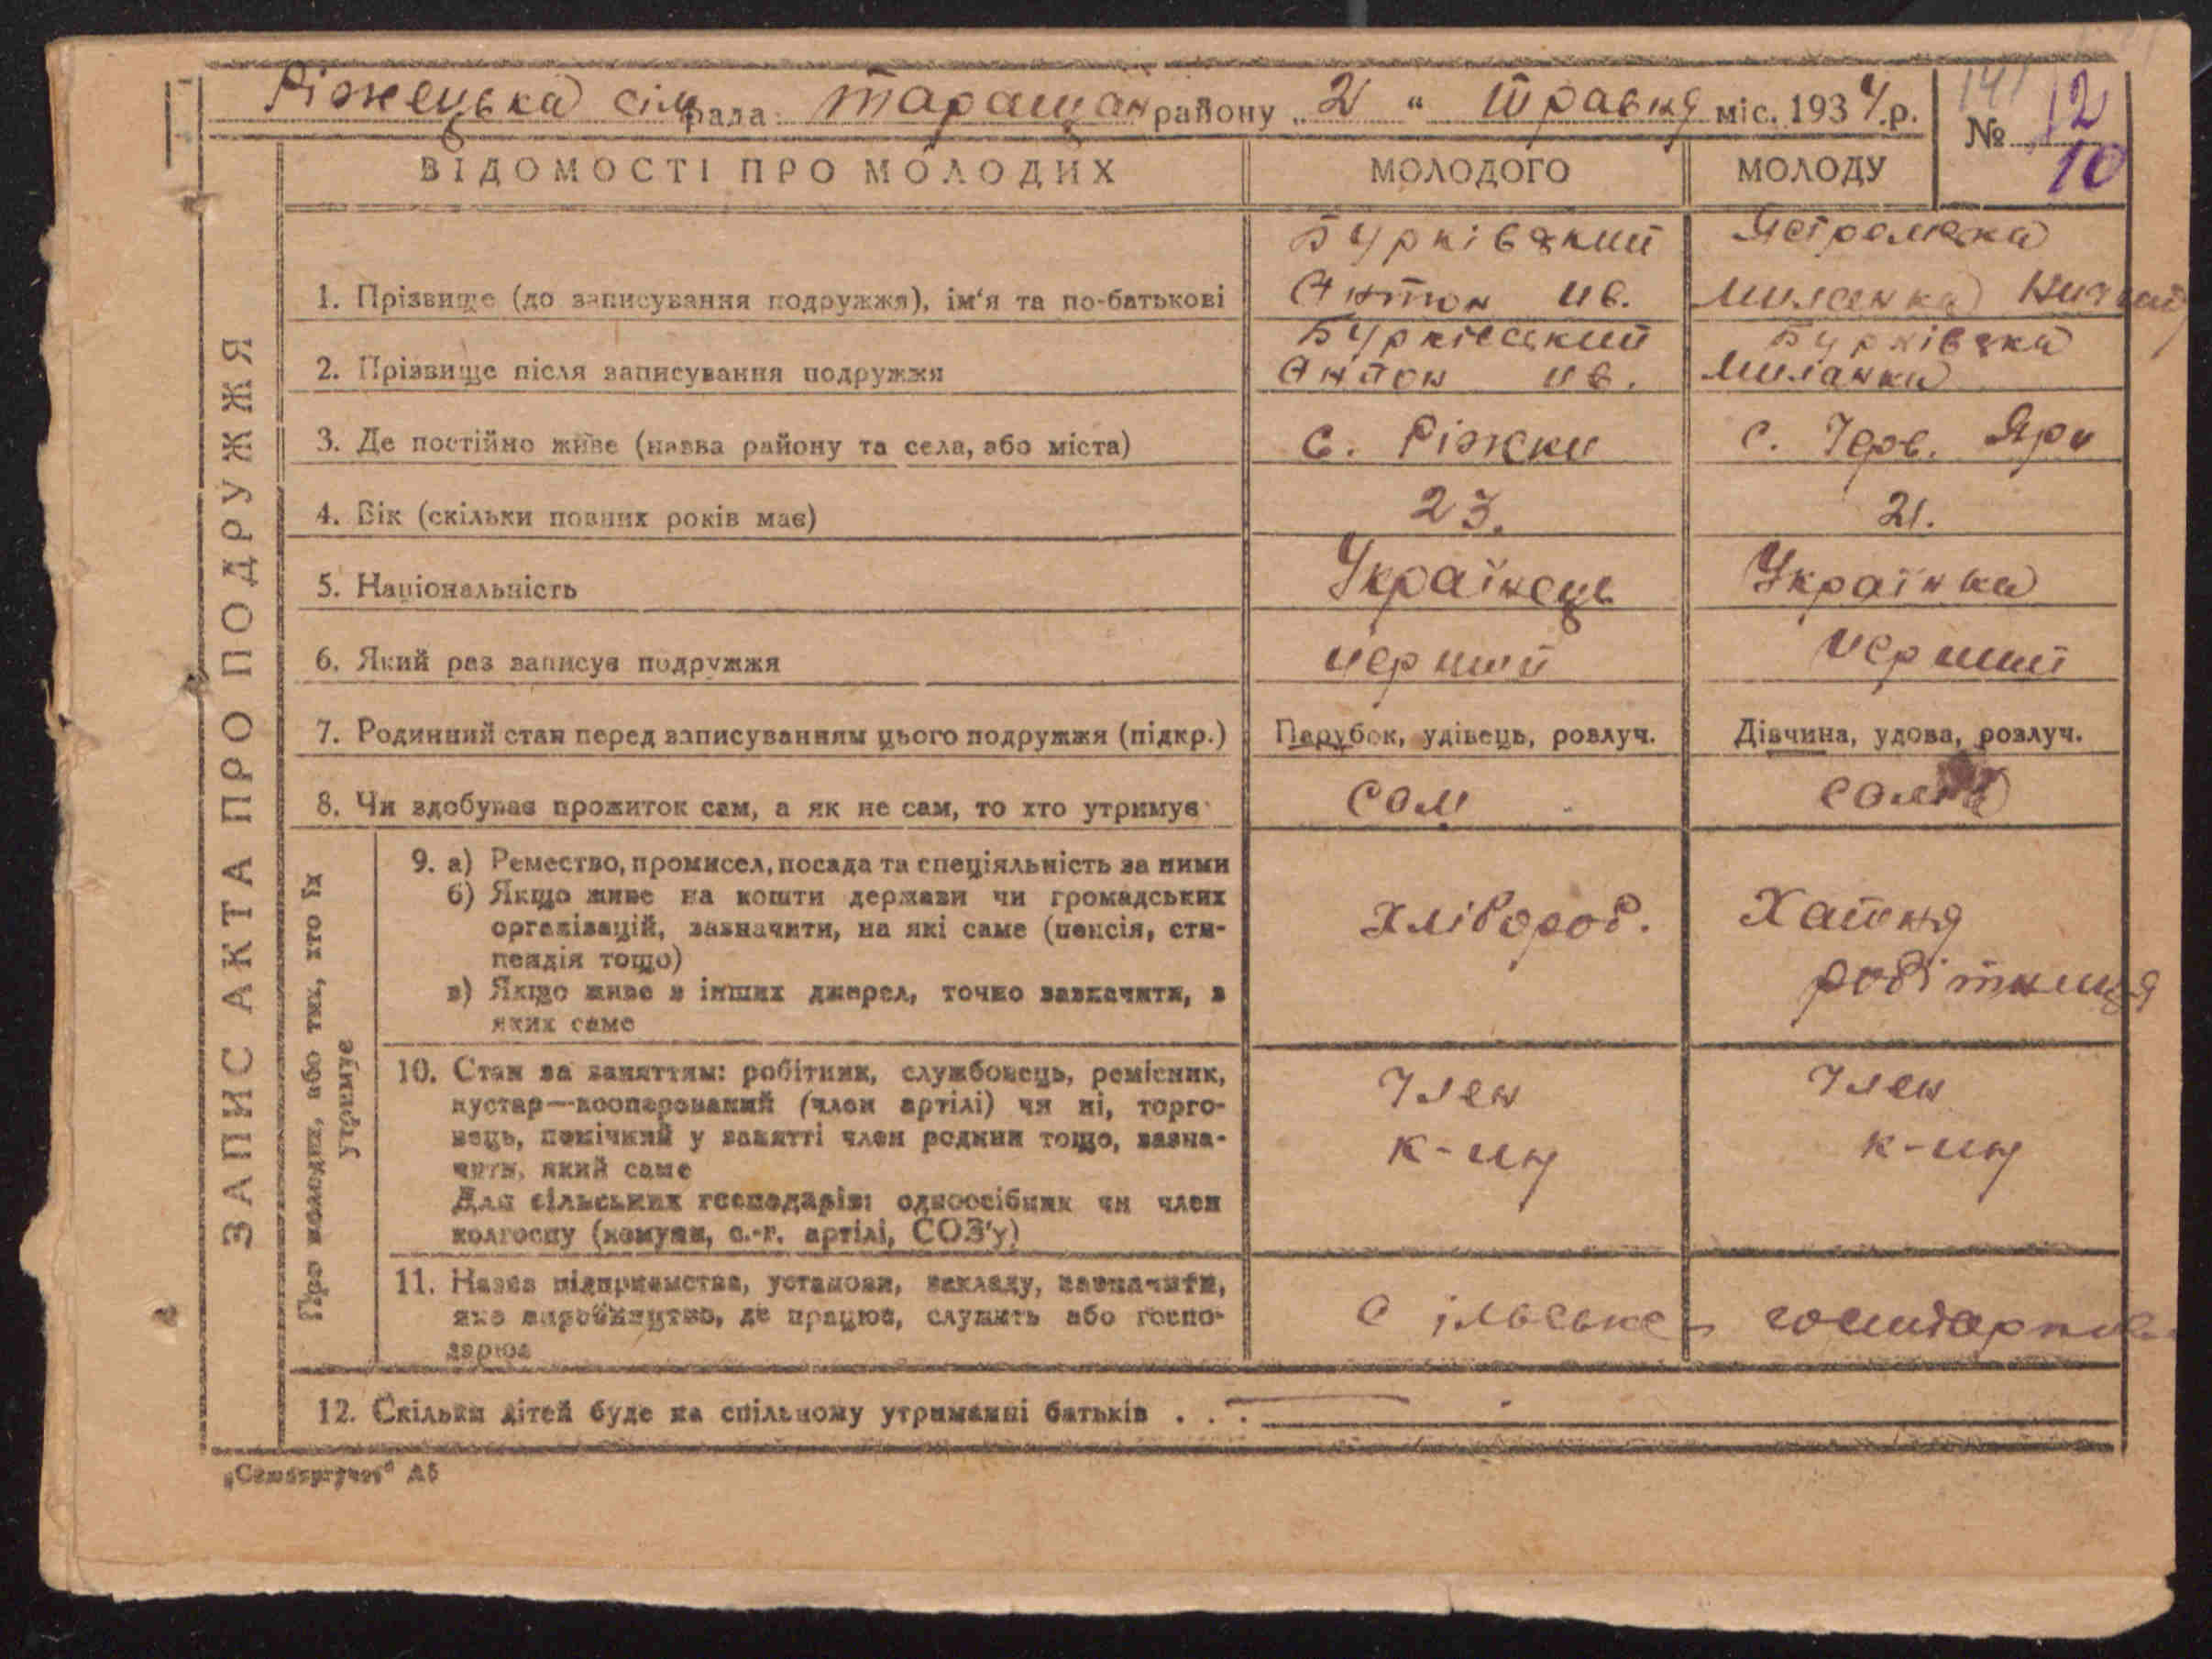 Ріжецька сільрада Таращан району „2“ травня міс. 1934 р.
№ 12
141
10
ВІДОМОСТІ ПРО МОЛОДИХ
МОЛОДОГО
МОЛОДУ
ЗАПИС АКТА ПРО ПОДРУЖЖЯ
1. Прізвище (до записування подружжя), ім'я та по-батькові
Бурківський
Антон Ив.
Миланка
2. Прізвище після записування подружжя
Бурківський
Антон Ив.
Бурківска
Миланка
3. Де постійно живе (назва району та села, або міста)
с. Ріжки
с. Черв. Яри
4. Вік (скільки повних років має)
23.
21.
5. Національність
Українець
Українка
6. Який раз записує подружжя
перший
перший
7. Родинний стан перед записуванням цього подружжя (підкр.)
Парубок, удівець, розлуч.
Дівчина, удова, розлуч.
8. Чи здобуває прожиток сам, а як не сам, то хто утримує
сам
сама
Про молодих, або тих, хто їх
утримує
9. а) Ремество, промисел, посада та спеціяльність за ними
б) Якщо живе на кошти держави чи громадських
організацій, зазначити, на які саме (пенсія, сти-
пендія тощо)
в) Якщо живе з інших джерел, точно зазначити, з
яких саме
Хлібороб.
Хатня
робітниця
10. Стан за заняттям: робітник, службовець, ремісник,
кустар—кооперований (член артілі) чи ні, торго-
вець, помічний у занятті член родини тощо, зазна-
чити, який саме
Для сільських господарів: одноосібник чи член
колгоспу (комуни, с.-г. артілі, СОЗ'у)
Член
к-пу
Член
к-пу
11. Назва підприємства, установи, закладу, зазначити,
яке виробництво, де працює, служить або госпо-
дарює
Сільське господарство
12. Скільки дітей буде на спільному утриманні батьків . . .